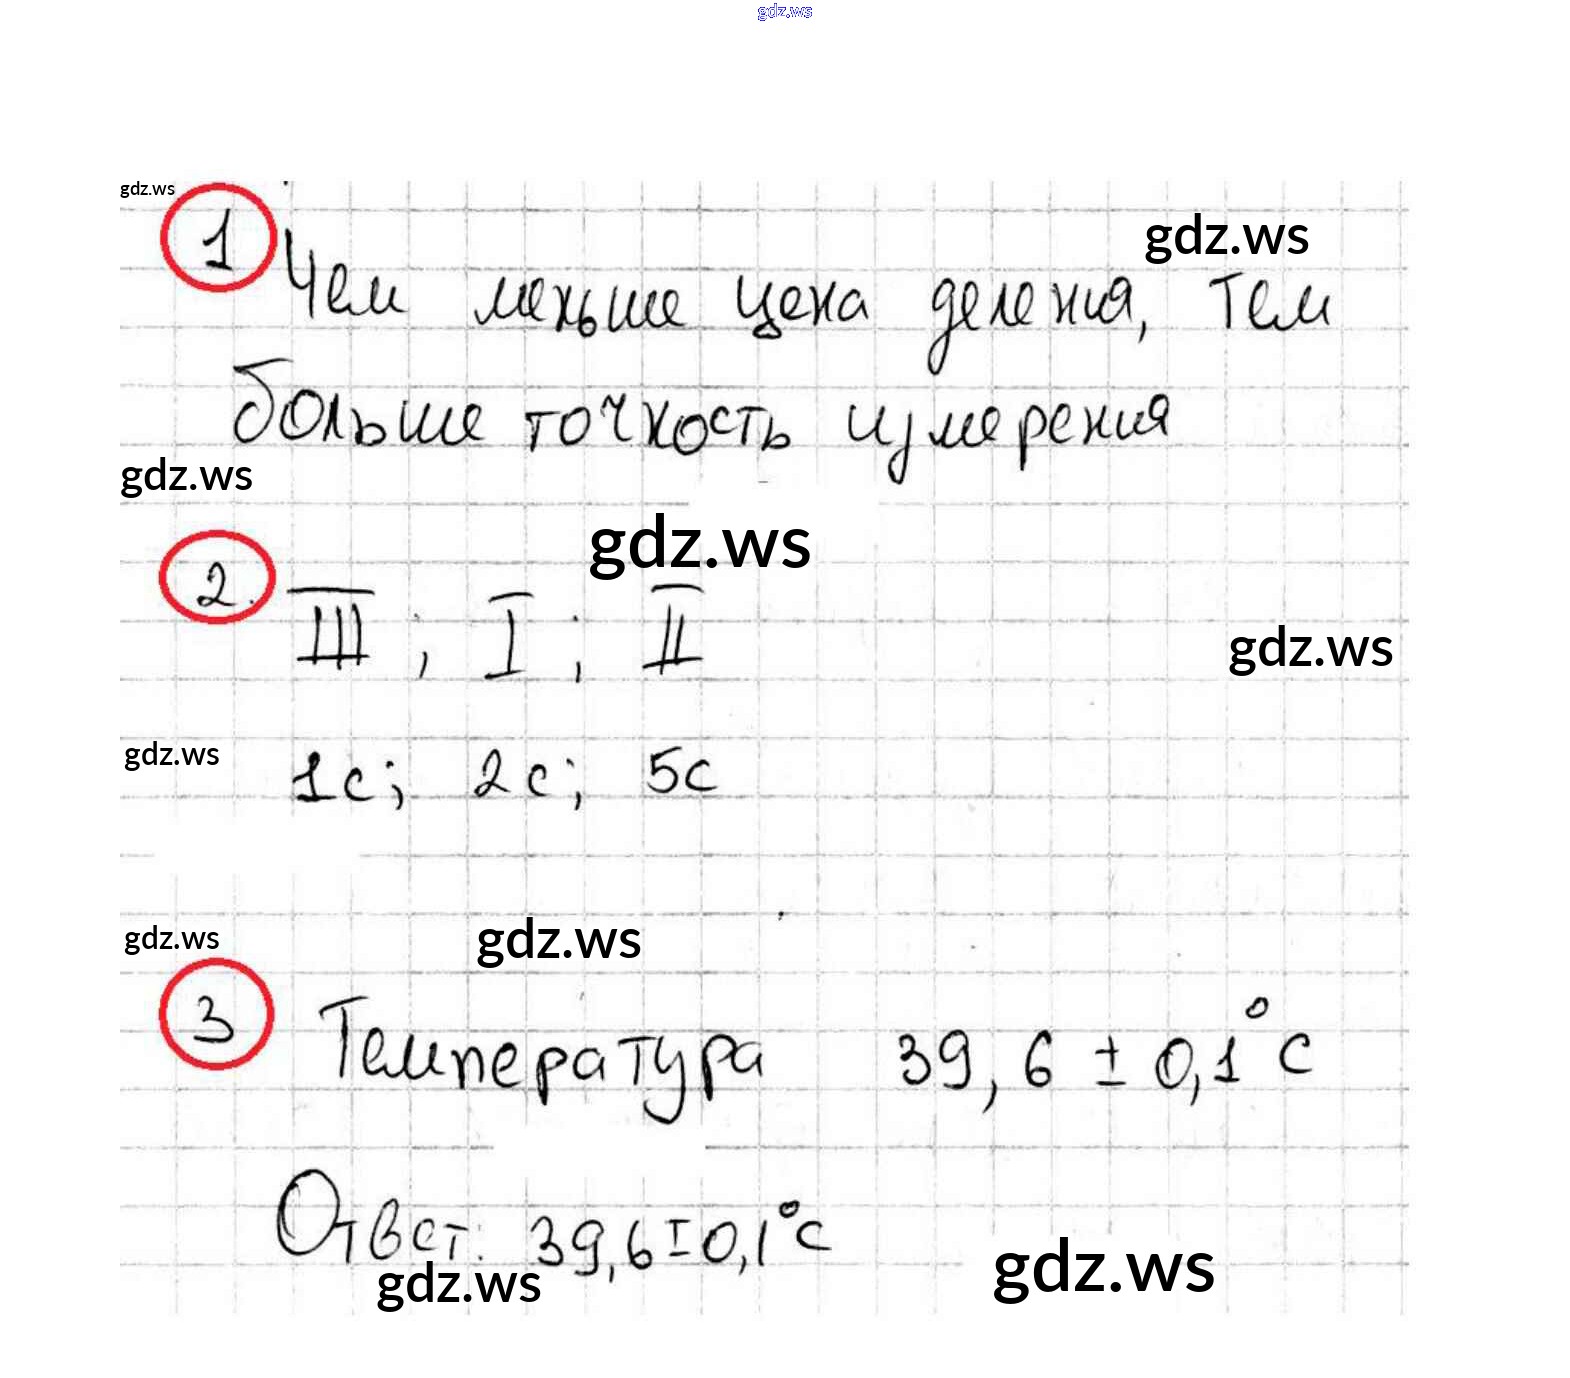 gdz.ws
gdz.ws
1
gdz.ws
Чем меньше цена деления, тем
больше точность измерения
gdz.ws
gdz.ws
2. III ; I ; II
gdz.ws
gdz.ws
1с; 2с; 5с
gdz.ws
gdz.ws
3 Температура 39,6 ± 0,1°С
Ответ: 39,6 ± 0,1°С
gdz.ws
gdz.ws